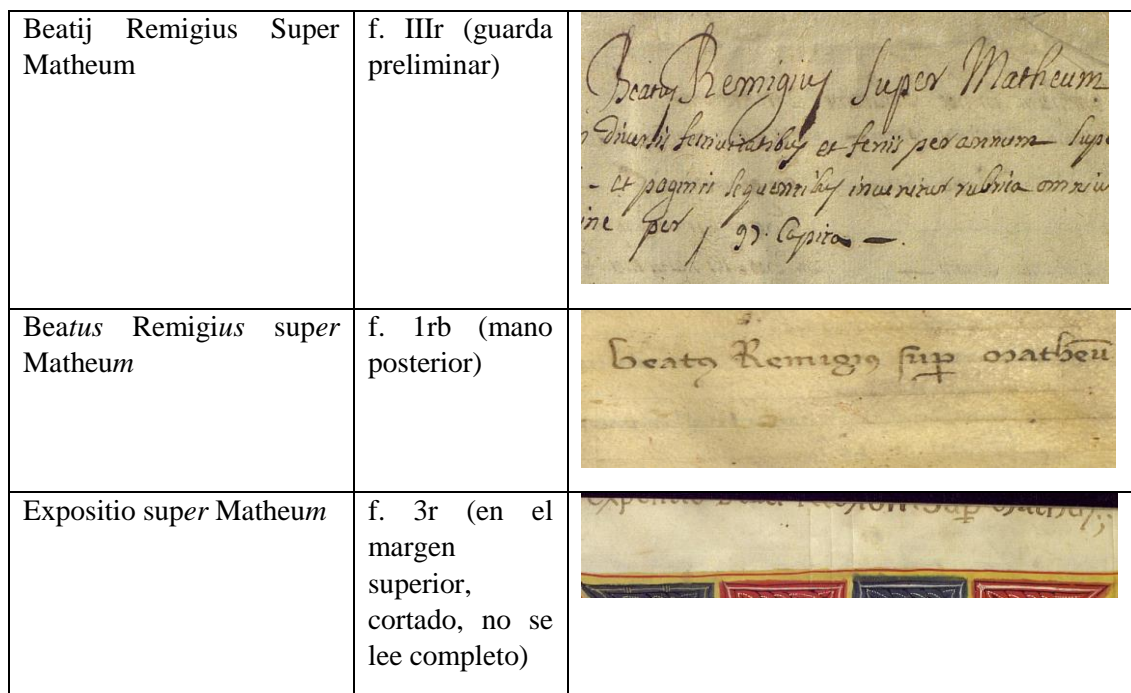 Beatij Remigius Super
Matheum
f. IIIr (guarda
preliminar)
Beatus Remigius super Matheum
diversis festivitatibus et feriis per annum
et paginis sequentibus invenitur rubrica
per 97. Capita
Beatus Remigius super
Matheum
f. 1rb (mano
posterior)
beatꝯ Remigiꝯ suꝑ matheū
Expositio super Matheum
f. 3r (en el
margen
superior,
cortado, no se
lee completo)